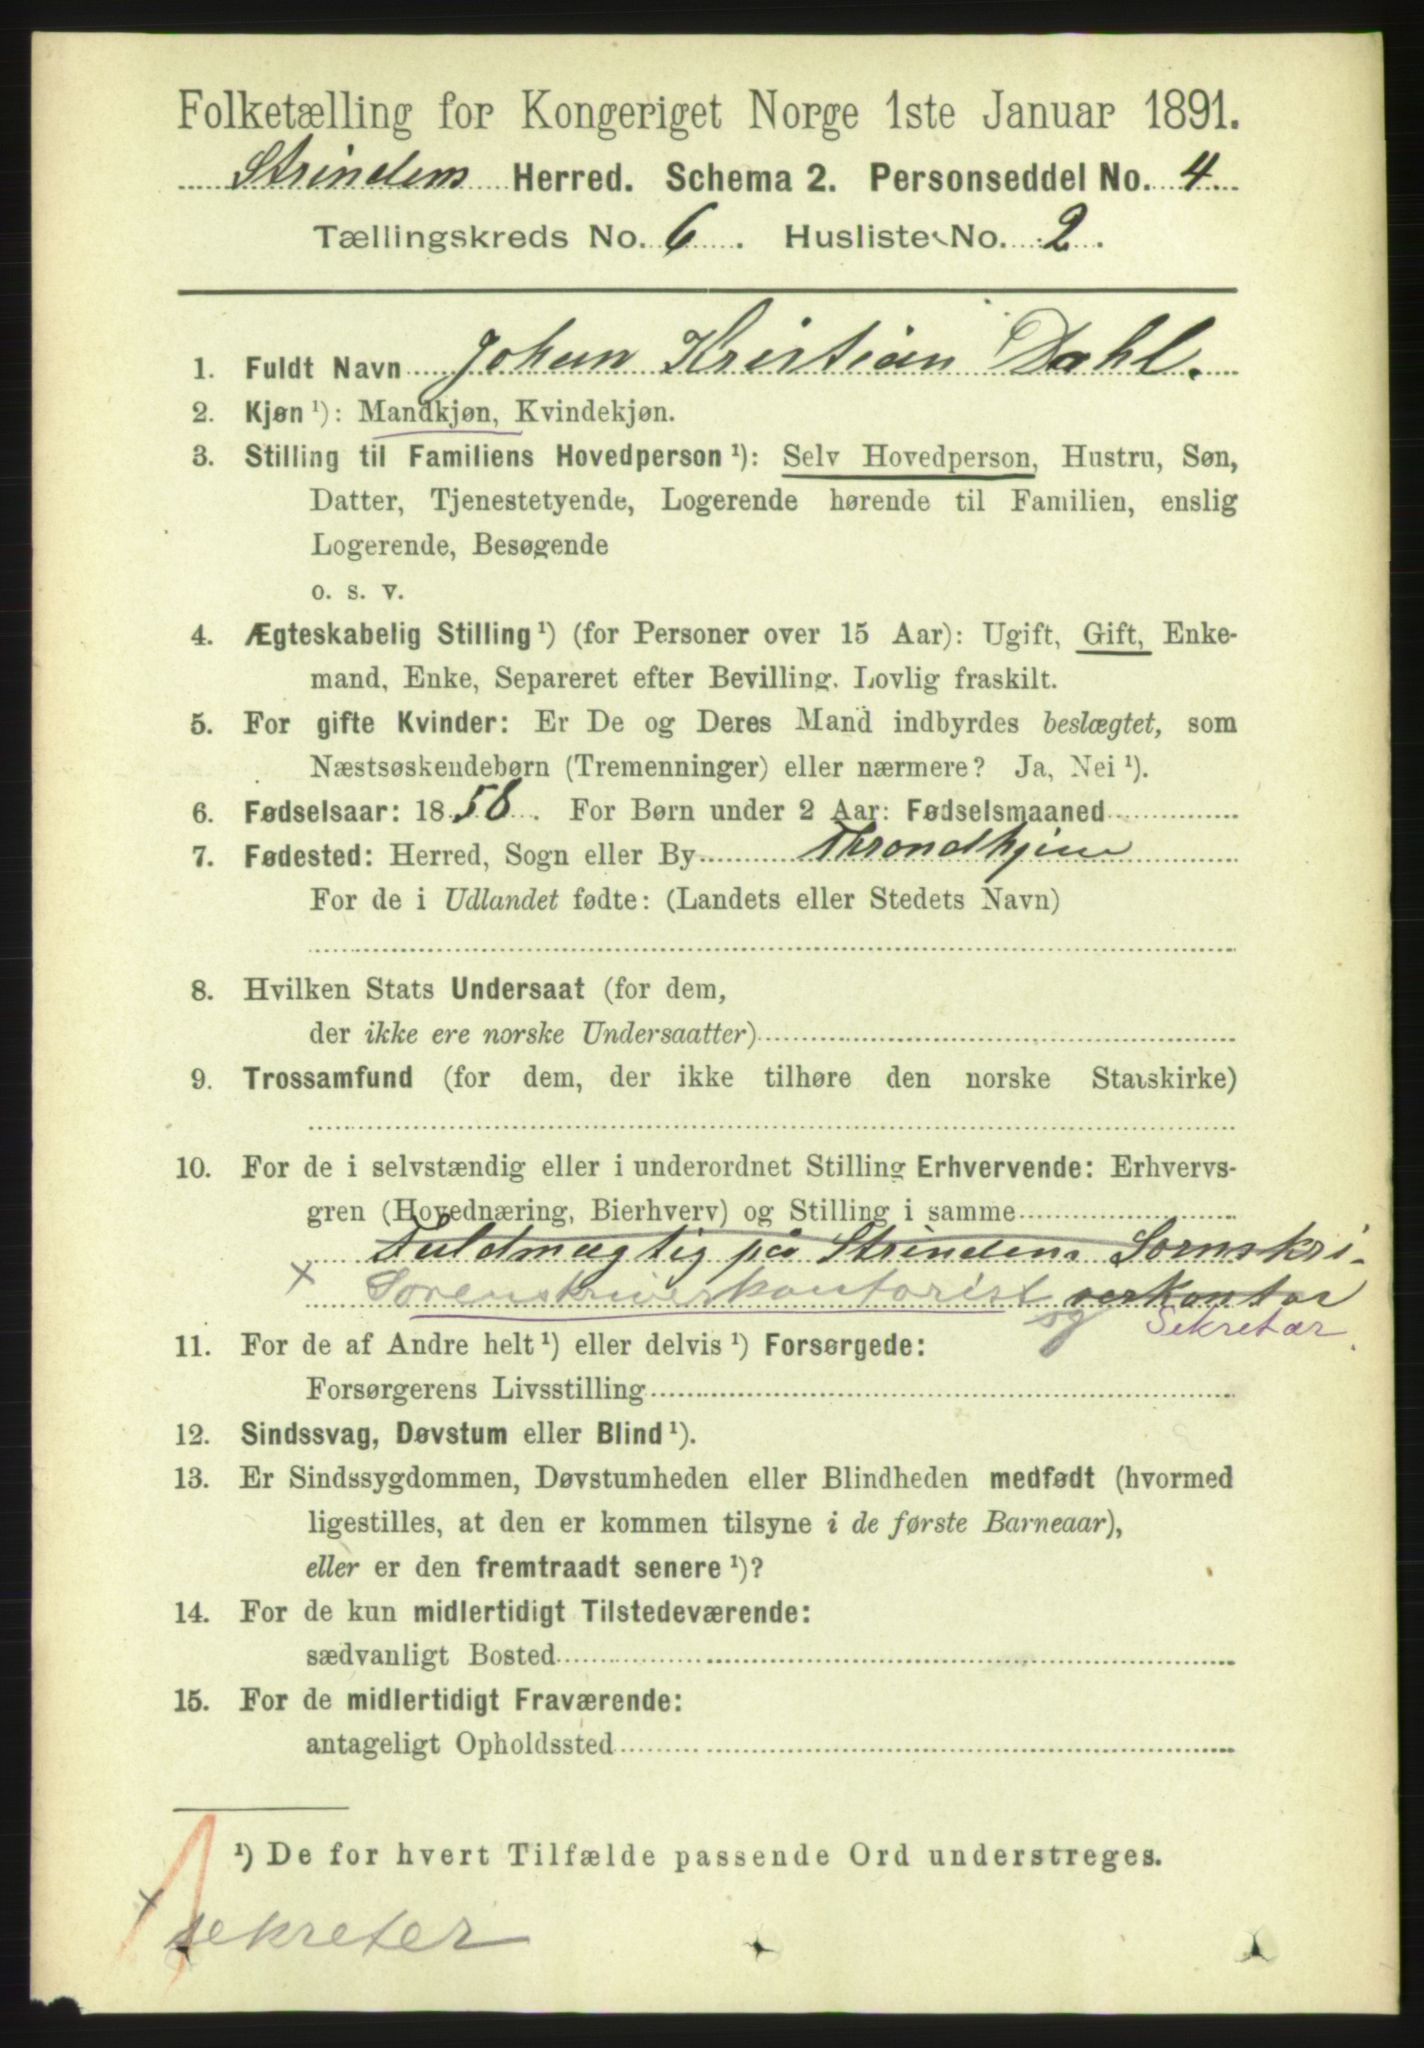 Folketælling for Kongeriget Norge 1ste Januar 1891.
Strindens Herred. Schema 2. Personseddel No. 4.
Tællingskreds No. 6. Husliste No. 2.
1. Fuldt Navn Johan Kristian Dahl.
2. Kjøn ¹): Mandkjøn, Kvindekjøn.
3. Stilling til Familiens Hovedperson ¹): Selv Hovedperson, Hustru, Søn,
Datter, Tjenestetyende, Logerende hørende til Familien, enslig
Logerende, Besøgende
o. s. v.
4. Ægteskabelig Stilling ¹) (for Personer over 15 Aar): Ugift, Gift, Enke-
mand, Enke, Separeret efter Bevilling. Lovlig fraskilt.
5. For gifte Kvinder: Er De og Deres Mand indbyrdes beslægtet, som
Næstsøskendebørn (Tremenninger) eller nærmere? Ja, Nei ¹).
6. Fødselsaar: 1858. For Børn under 2 Aar: Fødselsmaaned
7. Fødested: Herred, Sogn eller By Throndhjem
For de i Udlandet fødte: (Landets eller Stedets Navn)
8. Hvilken Stats Undersaat (for dem,
der ikke ere norske Undersaatter)
9. Trossamfund (for dem, der ikke tilhøre den norske Statskirke)
10. For de i selvstændig eller i underordnet Stilling Erhvervende: Erhvervs-
gren (Hovednæring, Bierhverv) og Stilling i samme
Fuldmægtig på Strindens Sornskri-
× Sorenskriverkontorist verkontor
og Sekretær
11. For de af Andre helt ¹) eller delvis ¹) Forsørgede:
Forsørgerens Livsstilling
12. Sindssvag, Døvstum eller Blind ¹).
13. Er Sindssygdommen, Døvstumheden eller Blindheden medfødt (hvormed
ligestilles, at den er kommen tilsyne i de første Barneaar),
eller er den fremtraadt senere ¹)?
14. For de kun midlertidigt Tilstedeværende:
sædvanligt Bosted
15. For de midlertidigt Fraværende:
antageligt Opholdssted
¹) De for hvert Tilfælde passende Ord understreges.
× sekretær